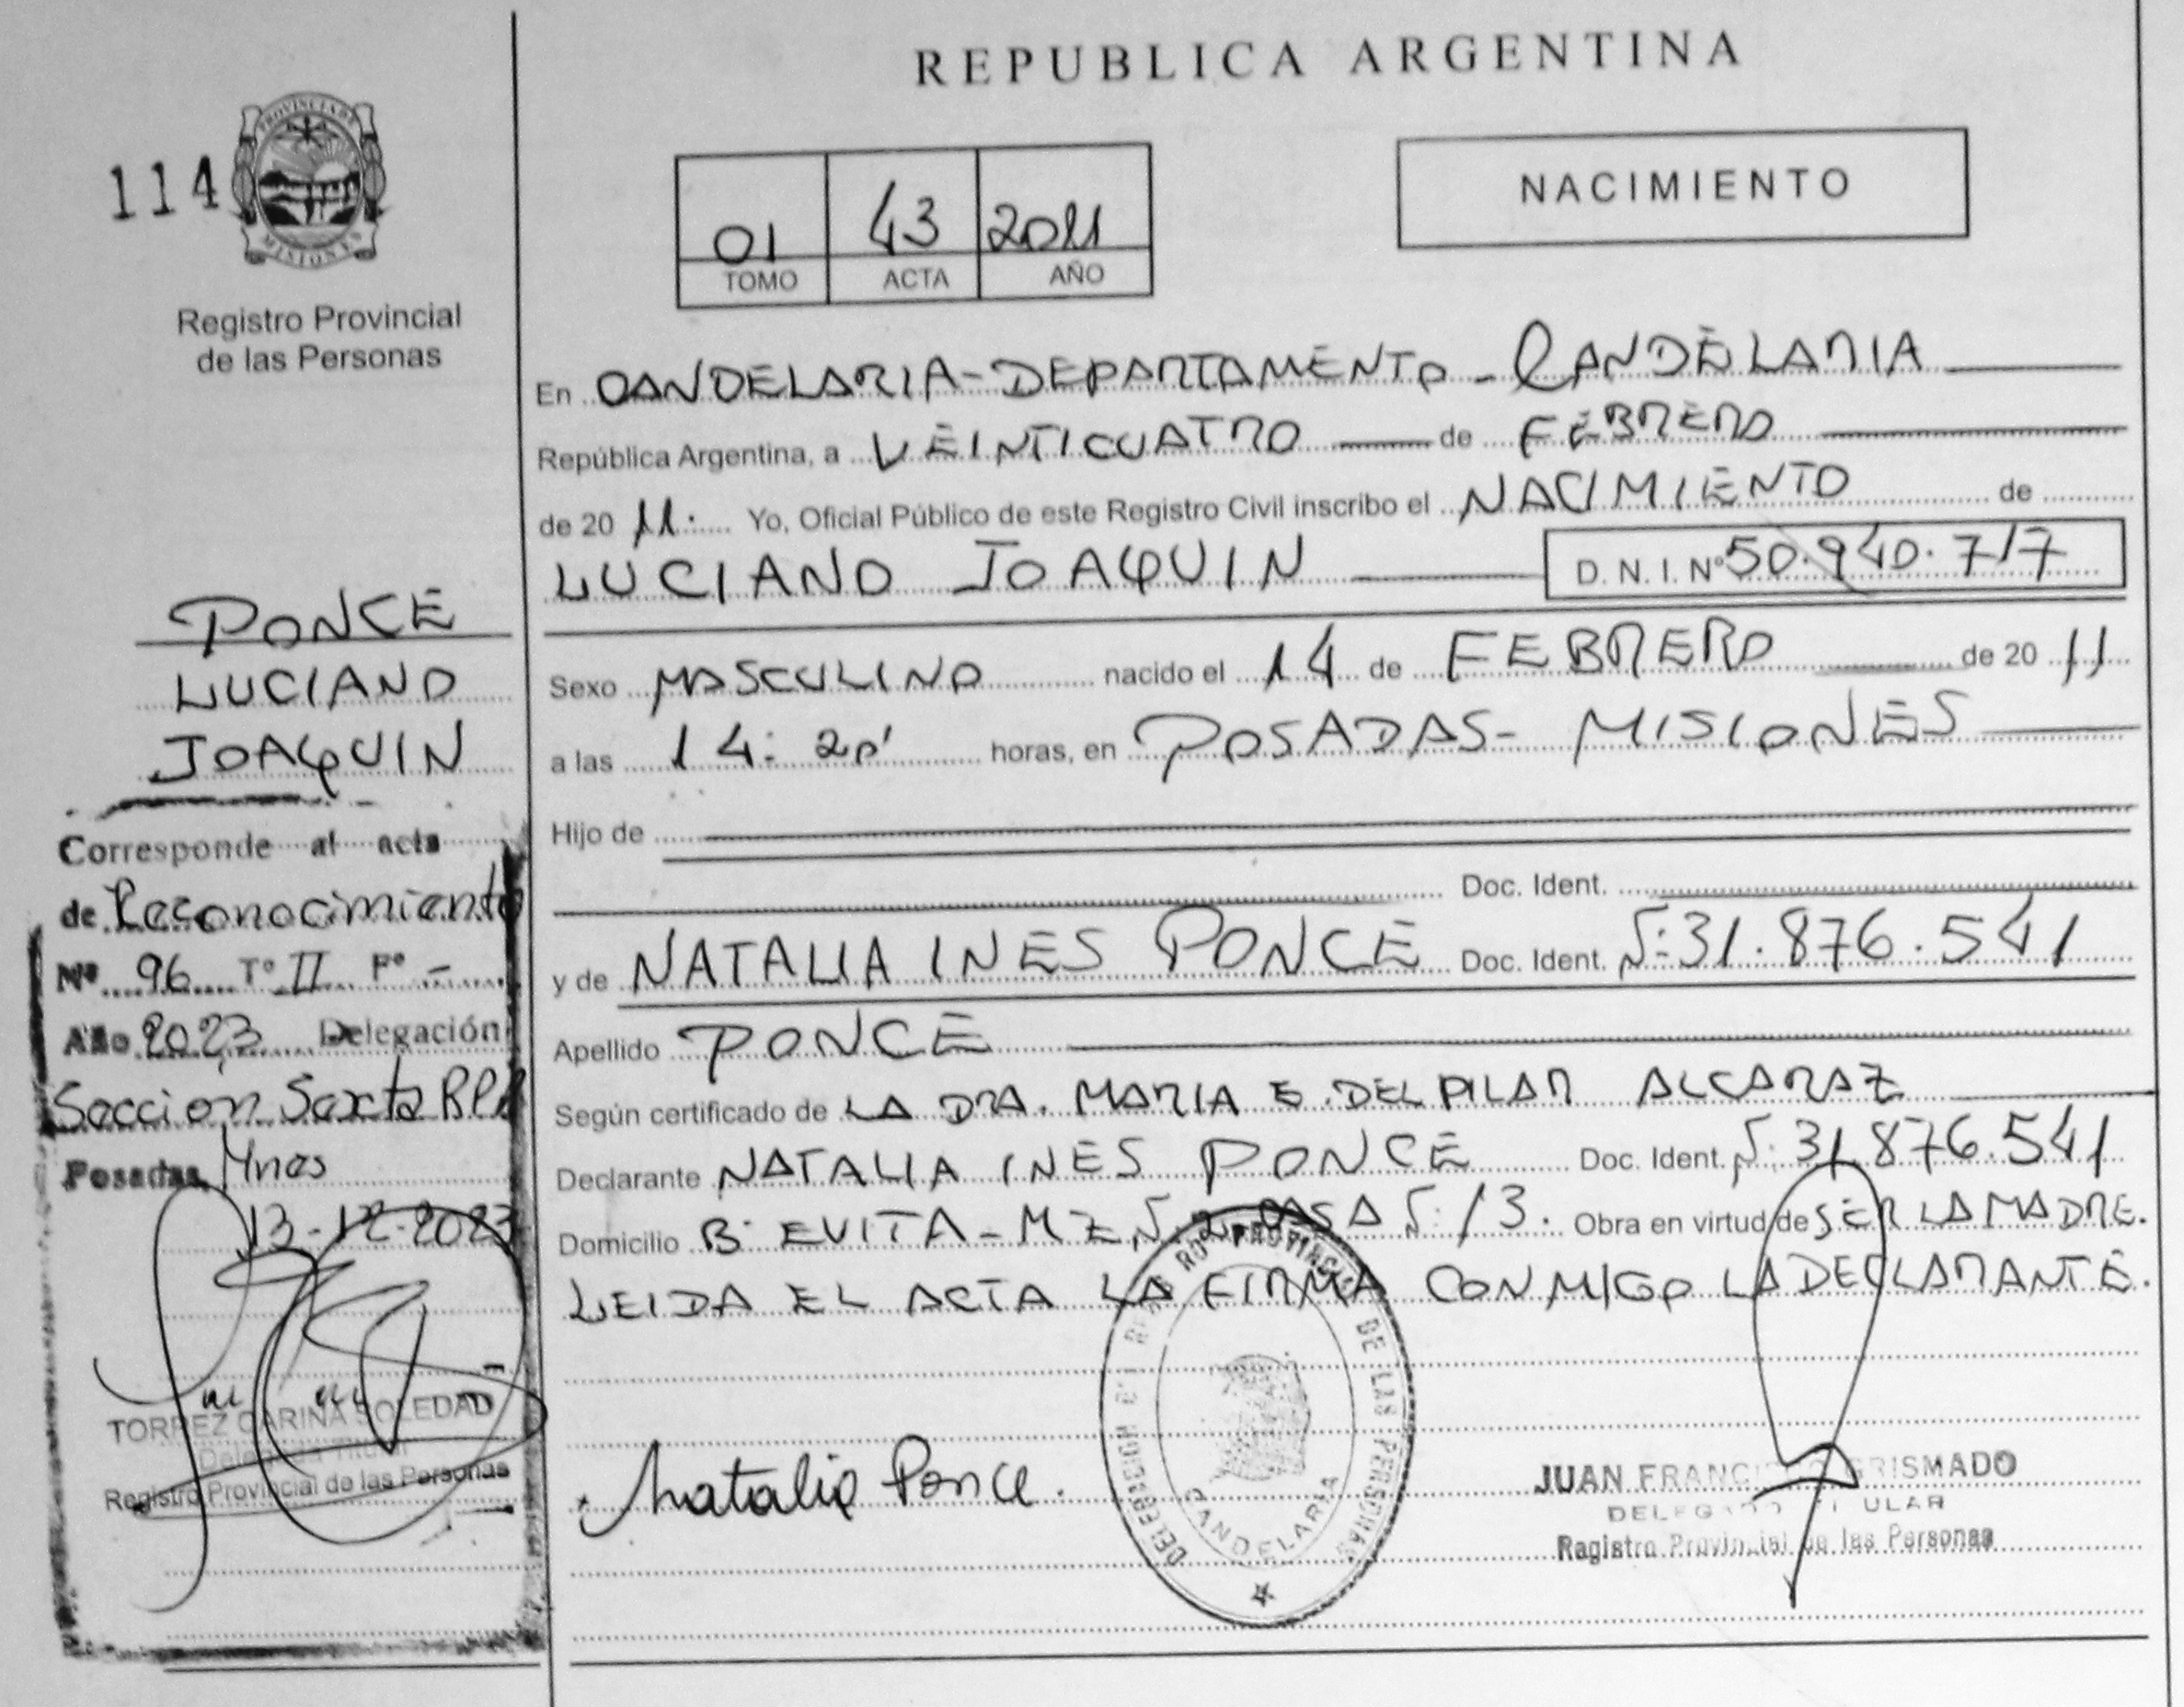 REPUBLICA ARGENTINA
114
PROVINCIA DE
MISIONES
Registro Provincial
de las Personas
01 43 2011
TOMO ACTA AÑO
NACIMIENTO
En CANDELARIA-DEPARTAMENTO - CANDELARIA
República Argentina, a VEINTICUATRO de FEBRERO
de 20 11. Yo, Oficial Público de este Registro Civil inscribo el NACIMIENTO de
LUCIANO JOAQUIN D. N. I. Nº 50.940.717
PONCE
LUCIANO
JOAQUIN
Sexo MASCULINO nacido el 14 de FEBRERO de 20 11
a las 14:20' horas, en POSADAS- MISIONES
Hijo de
Doc. Ident.
y de NATALIA INES PONCE Doc. Ident. N: 31.876.541
Apellido PONCE
Según certificado de LA DRA. MARIA E. DEL PILAR ALCARAZ
Declarante NATALIA INES PONCE Doc. Ident. N: 31.876.541
Domicilio B: EVITA - MZ N: 2 CASA N: 13. Obra en virtud de SER LA MADRE.
LEIDA EL ACTA LA FIRMA CONMIGO LA DECLARANTE.
Corresponde al acta
de Reconocimiento
Nº 96 Tº II Fº -
Año 2023 Delegación
Seccion Sexta RPP
Posadas, Mnes
13-12-2023
TORREZ CARINA SOLEDAD
Delegada Titular
Registro Provincial de las Personas
Natalia Ponce.
DELEGACION DEL REGISTRO PROVINCIAL DE LAS PERSONAS
CANDELARIA
JUAN FRANCISCO GRISMADO
DELEGADO TITULAR
Registro Provincial de las Personas